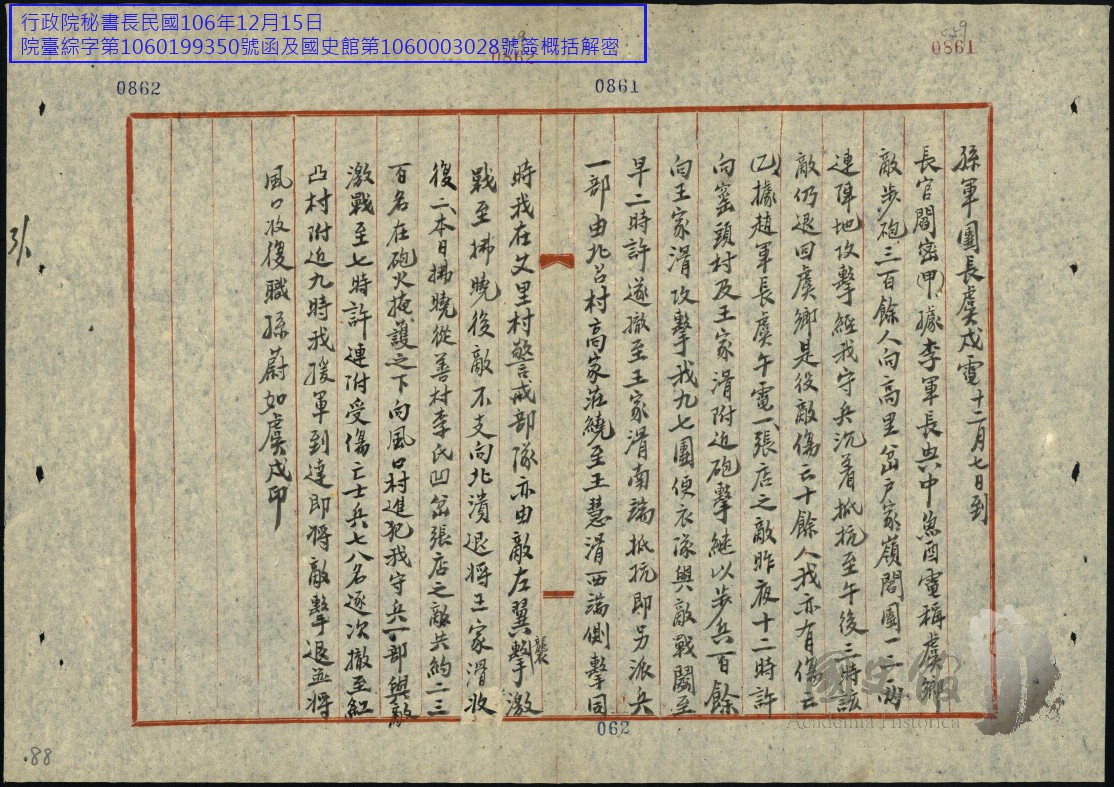 行政院秘書長民國106年12月15日
院臺綜字第1060199350號函及國史館第1060003028號等概括解密
0861
0862
0861
0862
孫軍團長虞戌電十二月七日到
長官閻密(甲)據李軍長興中魚酉電稱虞鄉
敵步砲三百餘人向高里岔戶家嶺閻團一二兩
連陣地攻擊經我守兵沉着抵抗至午後三時該
敵仍退回虞鄉是役敵傷亡十餘人我亦有傷亡
(乙)據趙軍長虞午電一、張店之敵昨夜十二時許
向窰頭村及王家滑附近砲擊繼以步兵百餘
向王家滑攻擊我九七團便衣隊與敵戰鬭至
早二時許遂撤至王家滑南端抵抗即另派兵
一部由北呂村高家莊繞至王慧滑西端側擊同
時我在文里村警戒部隊亦由敵左翼襲擊激
戰至拂曉後敵不支向北潰退將王家滑收
復二、本日拂曉從善村李氏凹岔張店之敵共約二三
百名在砲火掩護之下向風口村進犯我守兵一部與敵
激戰至七時許連附受傷亡士兵七八名逐次撤至紅
凸村附近九時我援軍到達即將敵擊退並將
風口收復職孫蔚如虞戌印
062
88
國史館
Academia Historica